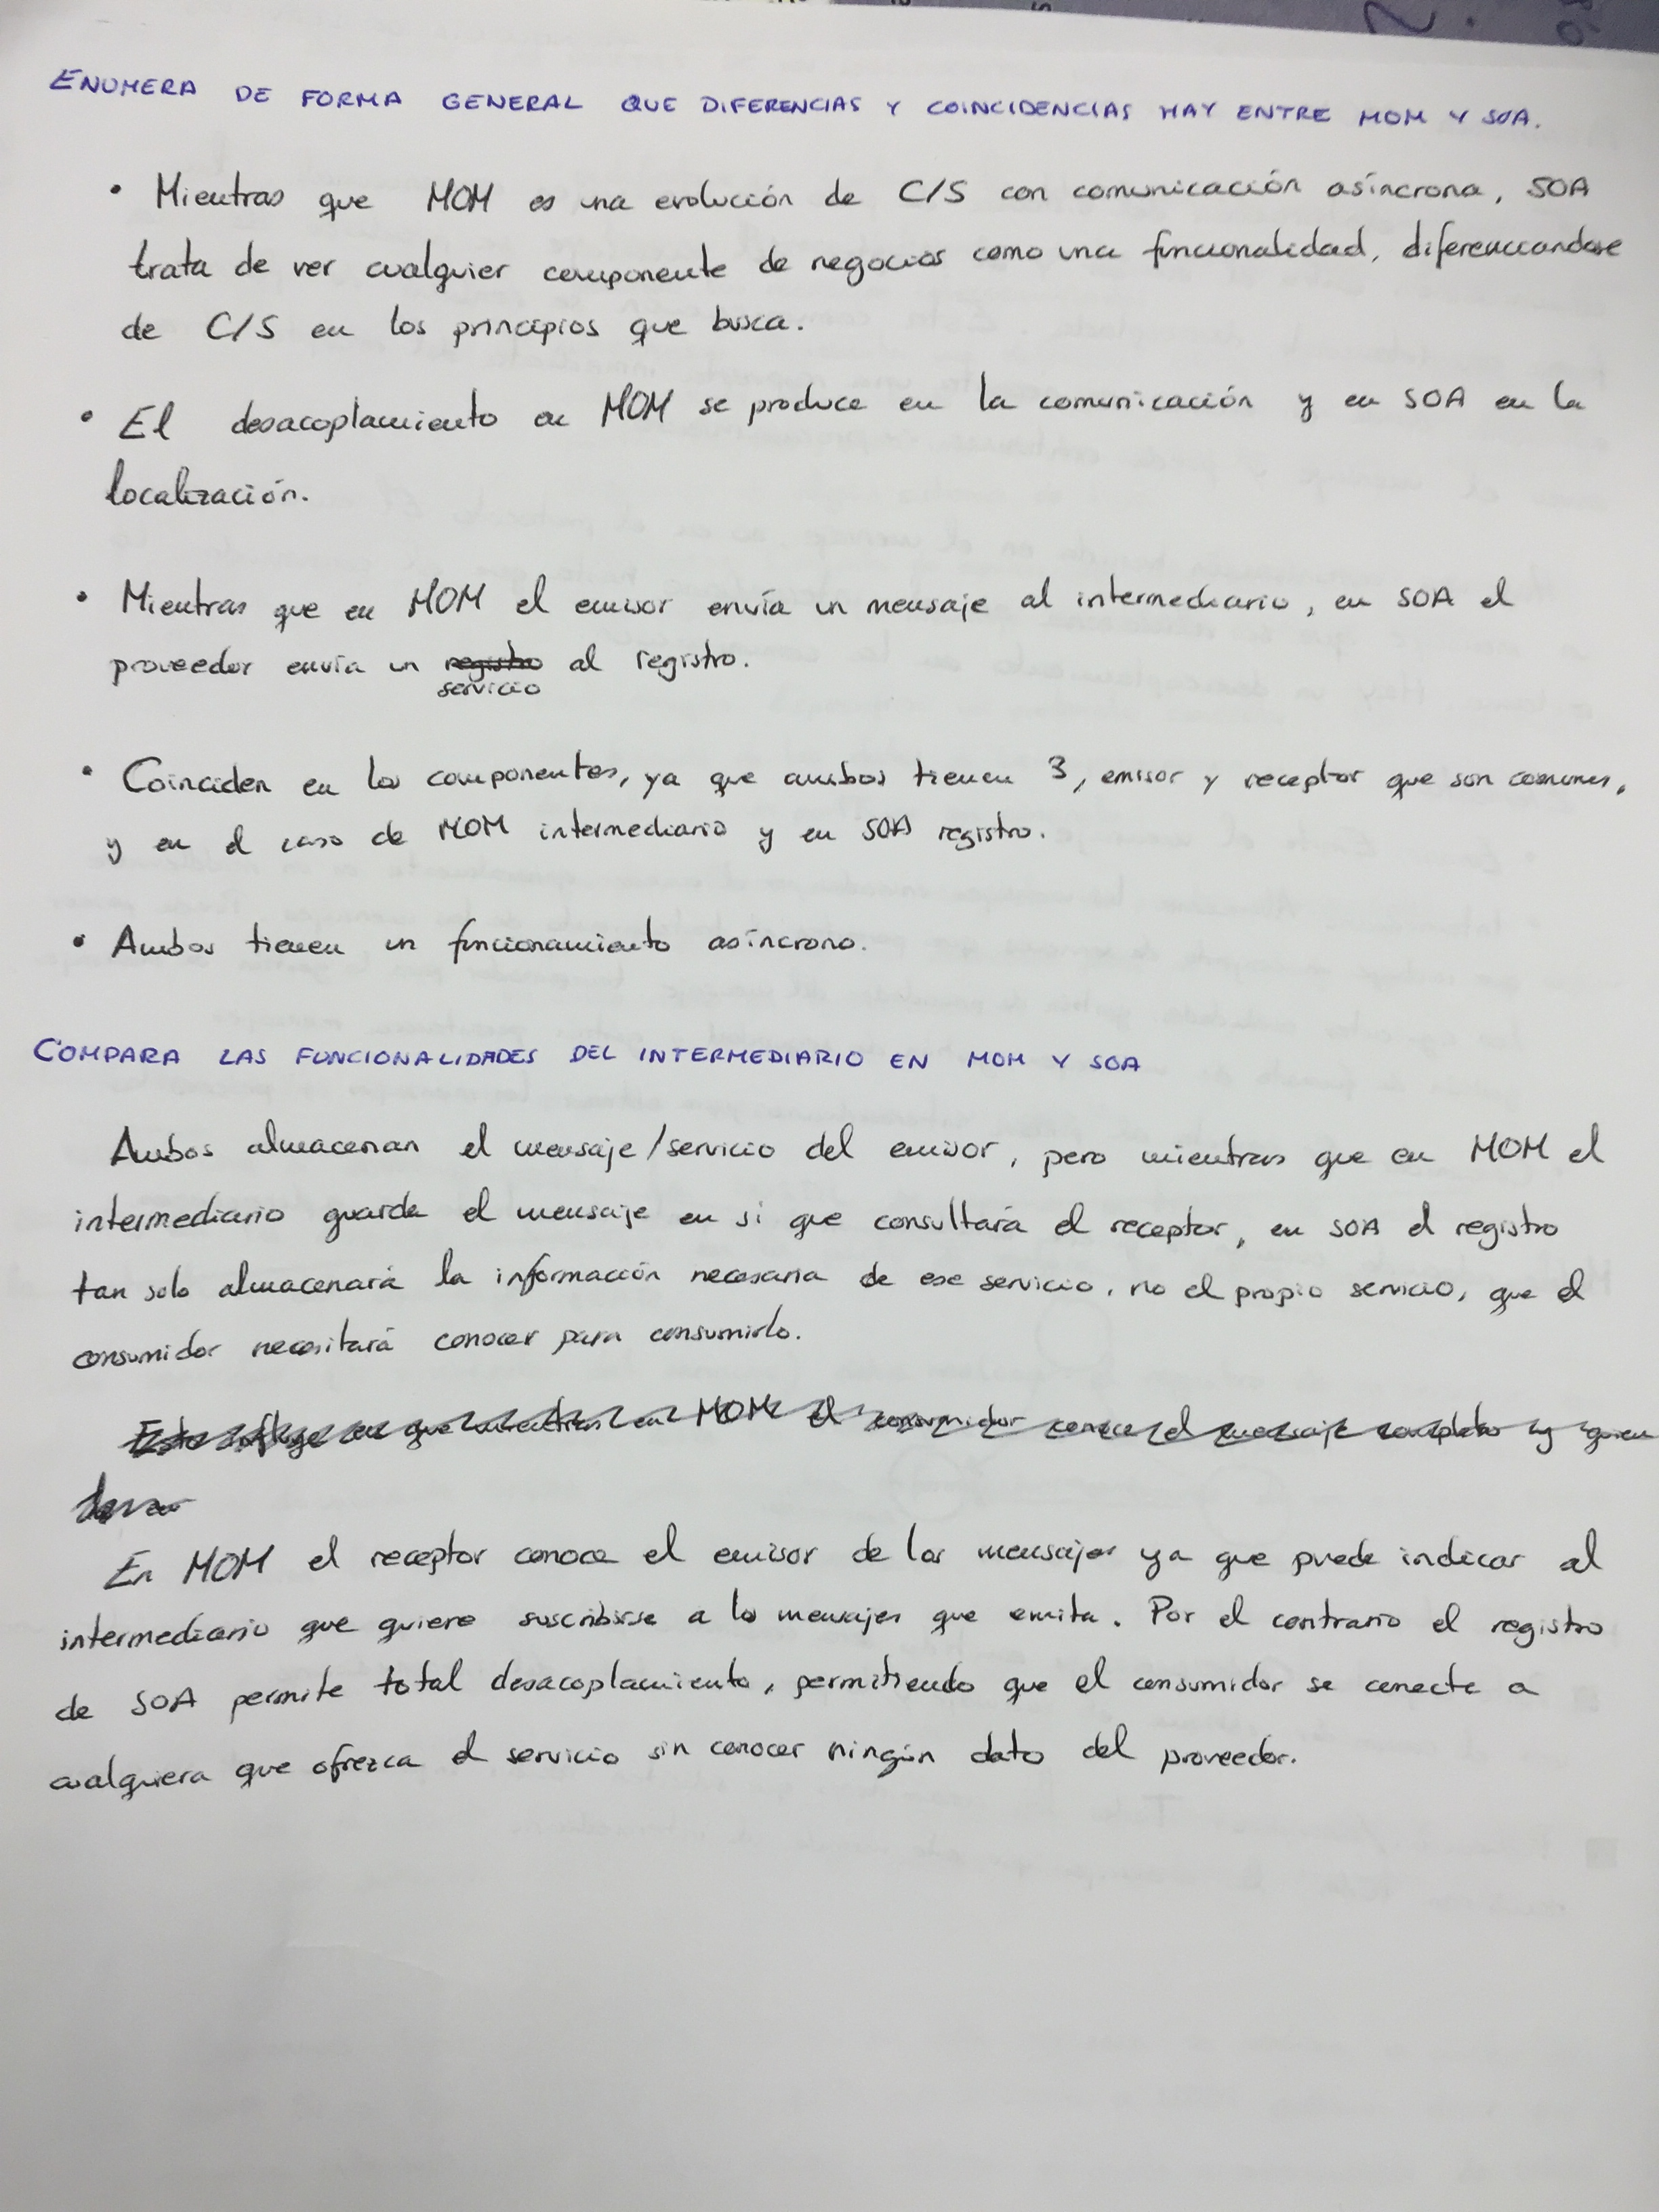 ENUMERA DE FORMA GENERAL QUE DIFERENCIAS Y COINCIDENCIAS HAY ENTRE MOM Y SOA.
• Mientras que MOM es una evolución de C/S con comunicación asíncrona, SOA
trata de ver cualquier componente de negocios como una funcionalidad, diferenciandose
de C/S en los principios que busca.
• El desacoplamiento en MOM se produce en la comunicación y en SOA en la
localización.
• Mientras que en MOM el emisor envía un mensaje al intermediario, en SOA el
proveedor envía un registro al registro.
servicio
• Coinciden en los componentes, ya que ambos tienen 3, emisor y receptor que son comunes,
y en el caso de MOM intermediario y en SOA registro.
• Ambos tienen un funcionamiento asíncrono.
COMPARA LAS FUNCIONALIDADES DEL INTERMEDIARIO EN MOM Y SOA
Ambos almacenan el mensaje/servicio del emisor, pero mientras que en MOM el
intermediario guarda el mensaje en si que consultará el receptor, en SOA el registro
tan solo almacenará la información necesaria de ese servicio, no el propio servicio, que el
consumidor necesitará conocer para consumirlo.
Esto influye en que mientras en MOM el consumidor conoce el mensaje completo y quien
En MOM el receptor conoce el emisor de los mensajes ya que puede indicar al
intermediario que quiere suscribirse a los mensajes que emita. Por el contrario el registro
de SOA permite total desacoplamiento, permitiendo que el consumidor se conecte a
cualquiera que ofrezca el servicio sin conocer ningún dato del proveedor.